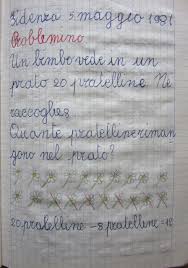 Fidenza 5 maggio 1981
Problemino
Un bimbo vide in un
prato 20 pratelline. Ne
raccoglie 8
Quante pratelline riman
gono nel prato?
20 pratelline - 8 pratelline = 12